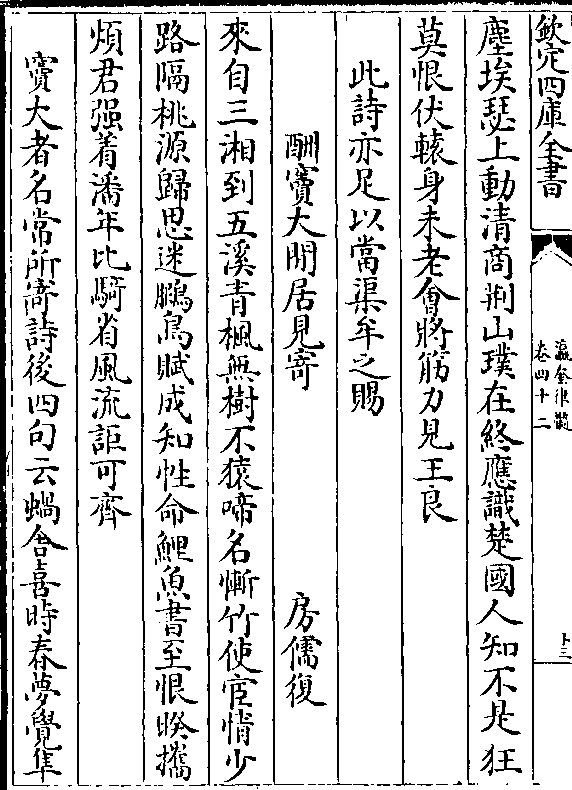 欽定四庫全書
瀛奎律髓
卷四十二
十三
塵埃瑟上動清商荆山璞在終應識楚國人知不是狂
莫恨伏轅身未老會將筋力見王良
此詩亦足以當渠牟之賜
酬竇大閒居見寄
房儒復
來自三湘到五溪青楓無樹不猿啼名慚竹使宦情少
路隔桃源歸思迷鵩鳥賦成知性命鯉魚書至恨暌攜
煩君强着潘年比騎省風流詎可齊
竇大者名常所寄詩後四句云蝸舍喜時春夢覺隼